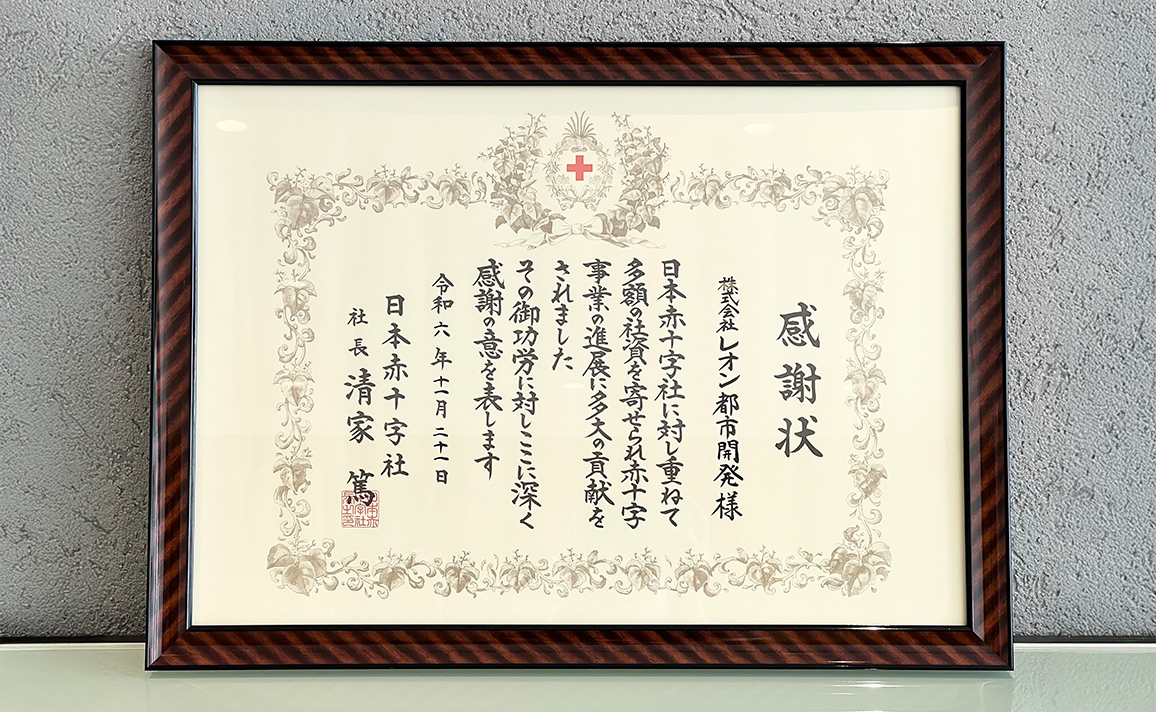 感謝状
株式会社レオン都市開発様
日本赤十字社に対し重ねて
多額の社資を寄せられ赤十字
事業の進展に多大の貢献を
されました
その御功労に対しここに深く
感謝の意を表します
令和六年十一月二十一日
日本赤十字社
社長 清家 篤